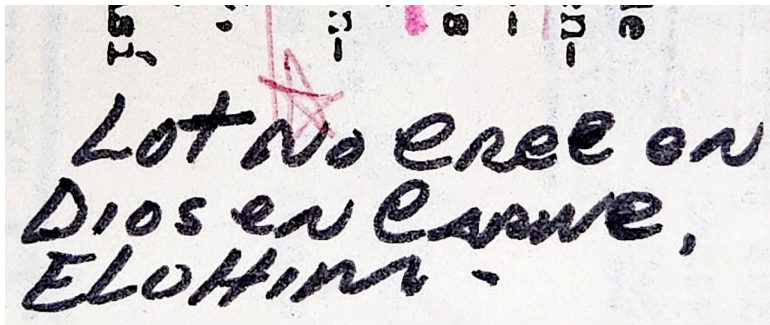 Lot No cree en
Dios en carne,
ELOHim.